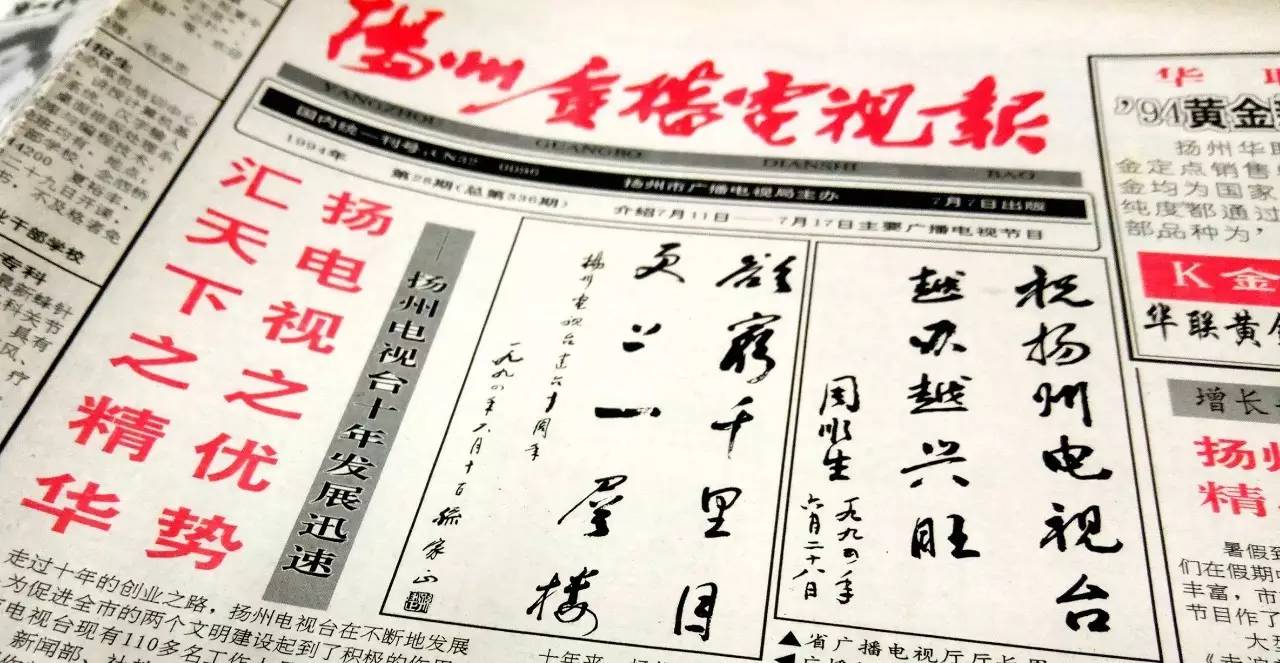 揚州廣播電視報
YANGZHOU GUANGBO DIANSHI BAO
国内统一刊号:CN32—0096 扬州市广播电视局主办 7月7日出版
1994年 第28期(总第336期) 介绍7月11日——7月17日主要广播电视节目
扬电视之优势
汇天下之精华
——扬州电视台十年发展迅速
走过十年的创业之路，扬州电视台在不断地发展
为促进全市的两个文明建设起到了积极的作用
电视台现有110多名工作人
新闻部、社
欲穷千里目
更上一层楼
扬州电视台建台十周年
一九九四年六月十
孙家正
祝扬州电视台
越办越兴旺
周顺生
一九九四年
六月二十八日
▲省广播电视厅厅长周
十年来，扬
华联
'94黄金
扬州华联
金定点销售
金均为国家
纯度都通过
部品种为'
K金
华联黄金
增长
扬州
精
暑假到
们在假期中
丰富，市
节目作了
大
招生
44200
二十九日
干部学校
专科